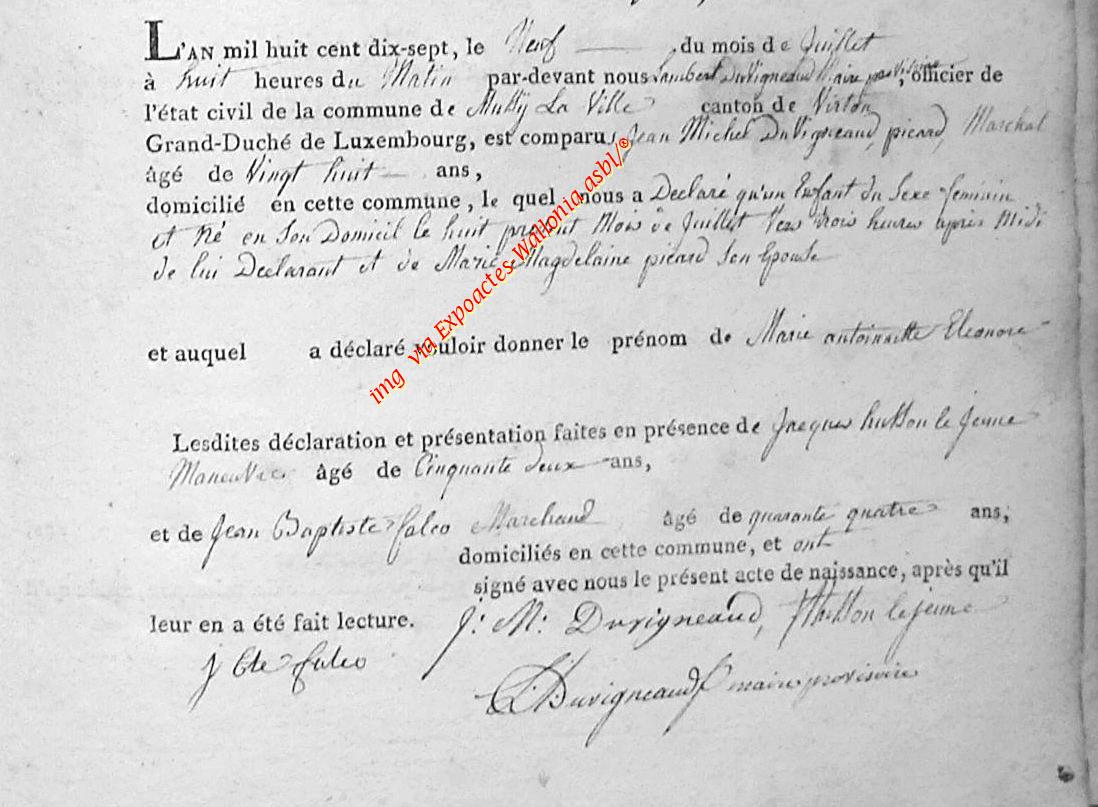 L'AN mil huit cent dix-sept, le Neuf du mois de Juillet
à huit heures du Matin par-devant nous Lambert DuVigneaud Maire provisoire, officier de
l'état civil de la commune de Mussy La Ville canton de Virton
Grand-Duché de Luxembourg, est comparu Jean Michel DuVigneaud, picard, Marchal
âgé de Vingt huit ans,
domicilié en cette commune, le quel nous a Declaré qu'un Enfant du Sexe feminin
et Né en Son Domicil le huit present Mois de Juillet Vers trois heures après Midi
de lui Declarant et de Marie Magdelaine picard Son Epouse
et auquel a déclaré vouloir donner le prénom de Marie antoinnette Eleonore
Lesdites déclaration et présentation faites en présence de Jacques husson le Jeune
Maneuvre âgé de Cinquante deux ans,
et de Jean Baptiste Marchand âgé de quarante quatre ans,
domiciliés en cette commune, et ont
signé avec nous le présent acte de naissance, après qu'il
leur en a été fait lecture. J: M: Duvigneaud, J husson le jeune
j Bte
L: Duvigneaud maire provisoire
img via Expoactes-Wallonia.asbl/©